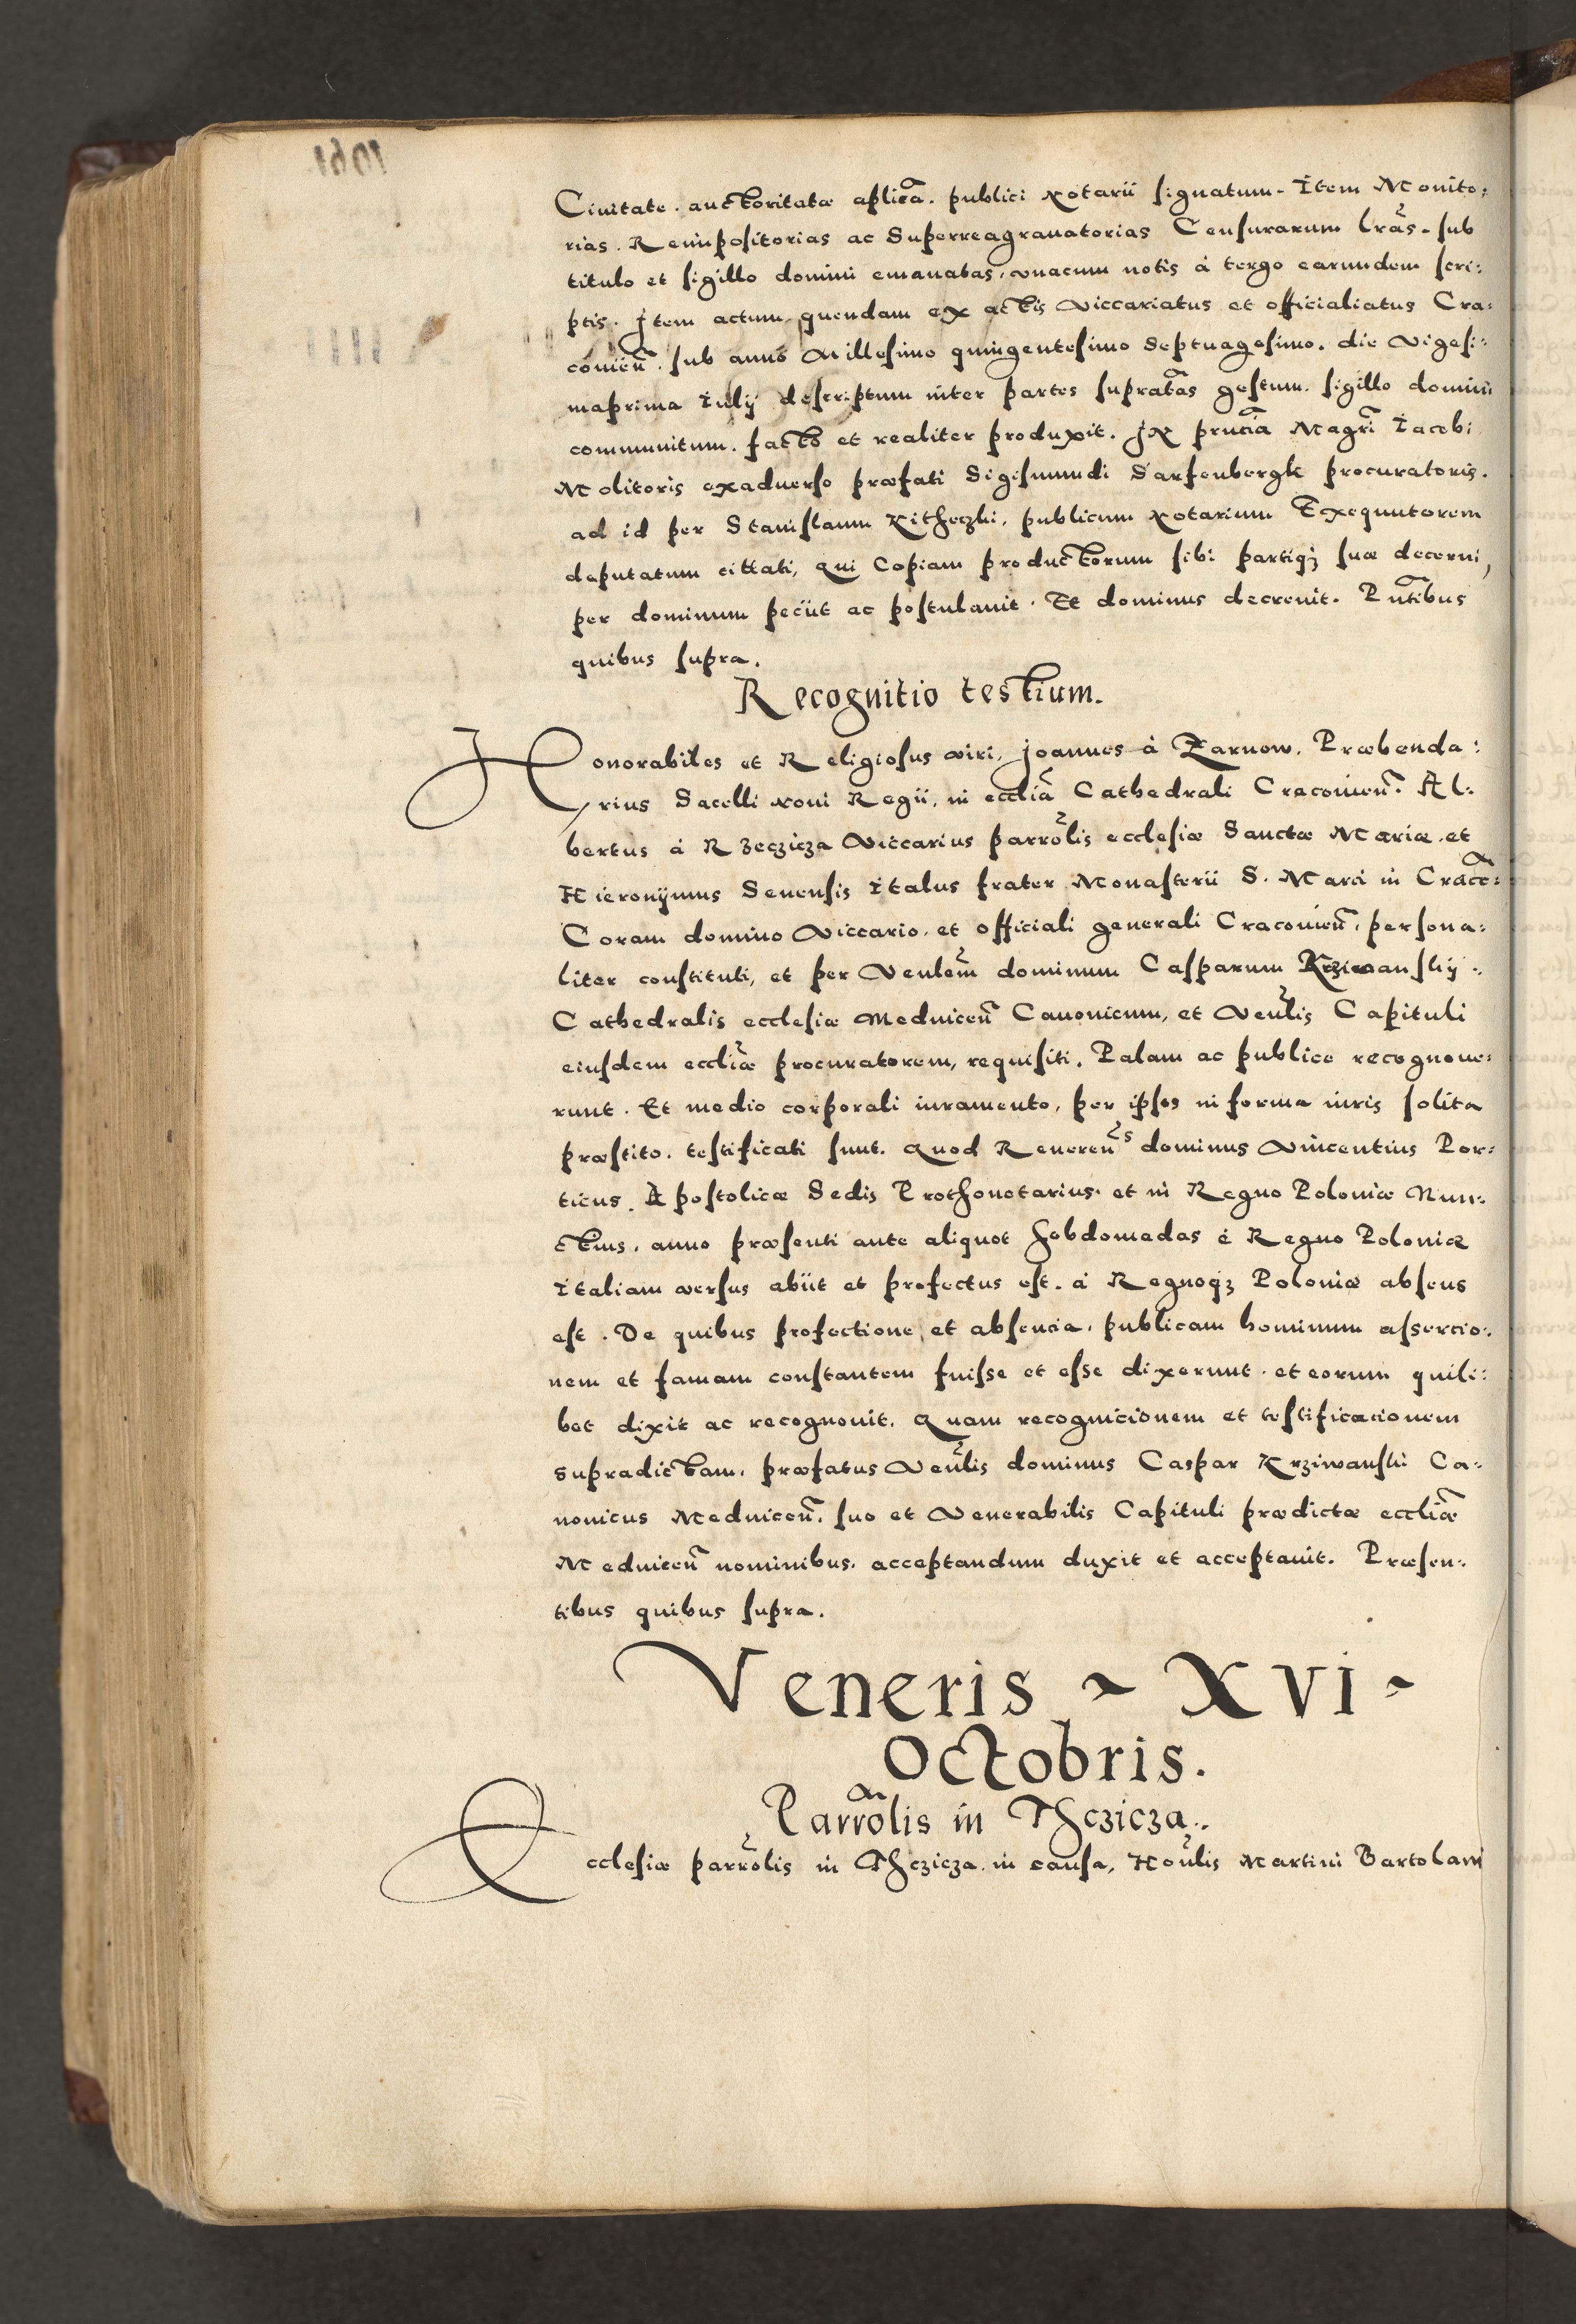 Ciuitate. auctoritatæ aplica. publici Notarii signatum. Item Monito:
rias. Reimpositorias ac Superreagrauatorias Censurarum lras. sub
titulo et sigillo domini emanatas, vnacum notis à tergo earundem scri:
ptis. Item actum quendam ex actis Viccariatus et officialiatus Cra:
couien. sub anno Millesimo quingentesimo Septuagesimo. die Vigesi:
maprima Iulij descriptum inter partes supratas gestum. sigillo domini
communitum. facto et realiter produxit. IN prncia Magri Iacobi
Molitoris exaduerso præfati Sigismundi Sarfenbergk procuratoris.
ad id per Stanislaum Nitheczki, publicum Notarium Exequutorem
deputatum cittati, qui Copiam productorum sibi partiqz suæ decerni,
per dominum peciit ac postulauit. Et dominus decreuit. Pntibus
quibus supra.
Recognitio testium.
Honorabiles et Religiosus viri, Joannes à Zarnow. Præbenda:
rius Sacelli noui Regii, in ecclia Cathedrali Cracouien. Al:
bertus à Rzeczicza Viccarius parrolis ecclesiæ Sanctæ Mariæ. et
Hieronymus Senensis Italus frater Monasterii S. Marci in Crac:
Coram domino Viccario. et officiali generali Cracouien, persona:
liter constituti, et per Venlem dominum Casparum Krziwanskij:
Cathedralis ecclesiæ Mednicen Canonicum, et Venlis Capituli
eiusdem ecclіæ procuratorem, requisiti. Palam ac publice recognoue:
runt. Et medio corporali iuramento, per ipsos in forma iuris solita
præstito. testificati sunt. Quod Reueren​s dominus Vincentius Por:
ticus. Apostolicæ Sedis Prothonotarius. et in Regno Poloniæ Nun:
ctius, anno præsenti ante aliquot hebdomadas è Regno Poloniæ
Italiam versus abiit et profectus est. à Regnoqz Poloniæ absens
est. De quibus profectione, et absencia, publicam hominum assercio:
nem et famam constantem fuisse et esse dixerunt. et eorum quili:
bet dixit ac recognouit. Quam recognicionem et testificacionem
supradictam, præfatus Venlis dominus Caspar Krziwanski Ca:
nonicus Mednicen. suo et Venerabilis Capituli prædictæ ecclіæ
Mednicen nominibus. acceptandum duxit et acceptauit. Præsen:
tibus quibus supra.
Veneris ~ XVI ~
Octobris.
Parrolis in Thczicza.
Ecclesiæ parrolis in Thczicza. in causa, Honlis Martini Bartolam